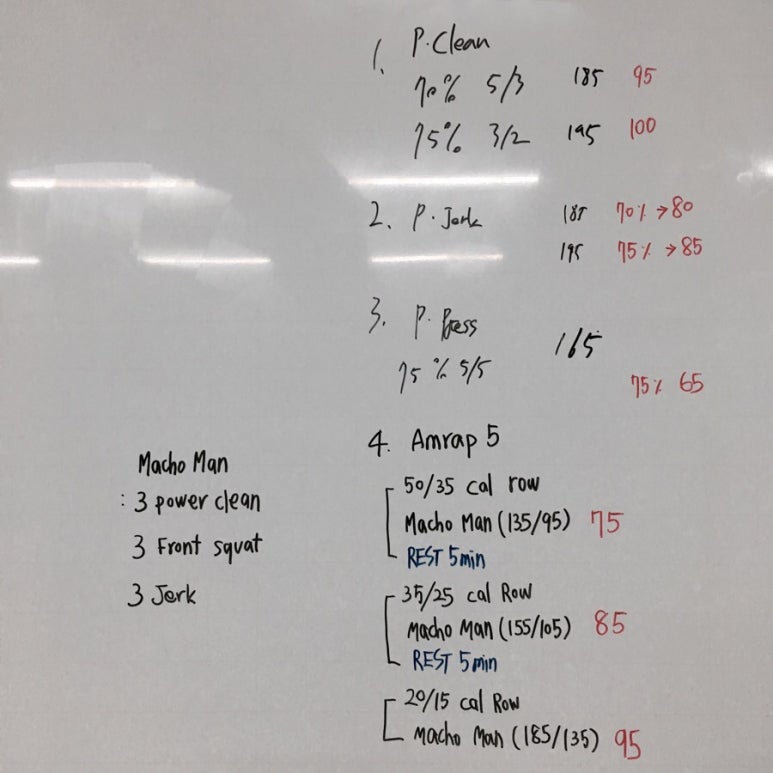 1. P.Clean
70% 5/3 185 95
75% 3/2 195 100
2. P.Jerk 185 70% → 80
195 75% → 85
3. P.Press 165
75% 5/5 75% 65
4. Amrap 5
50/35 cal row
Macho Man (135/95) 75
REST 5min
35/25 cal Row
Macho Man (155/105) 85
REST 5min
20/15 cal Row
Macho Man (185/135) 95
Macho Man
: 3 power clean
3 Front squat
3 Jerk